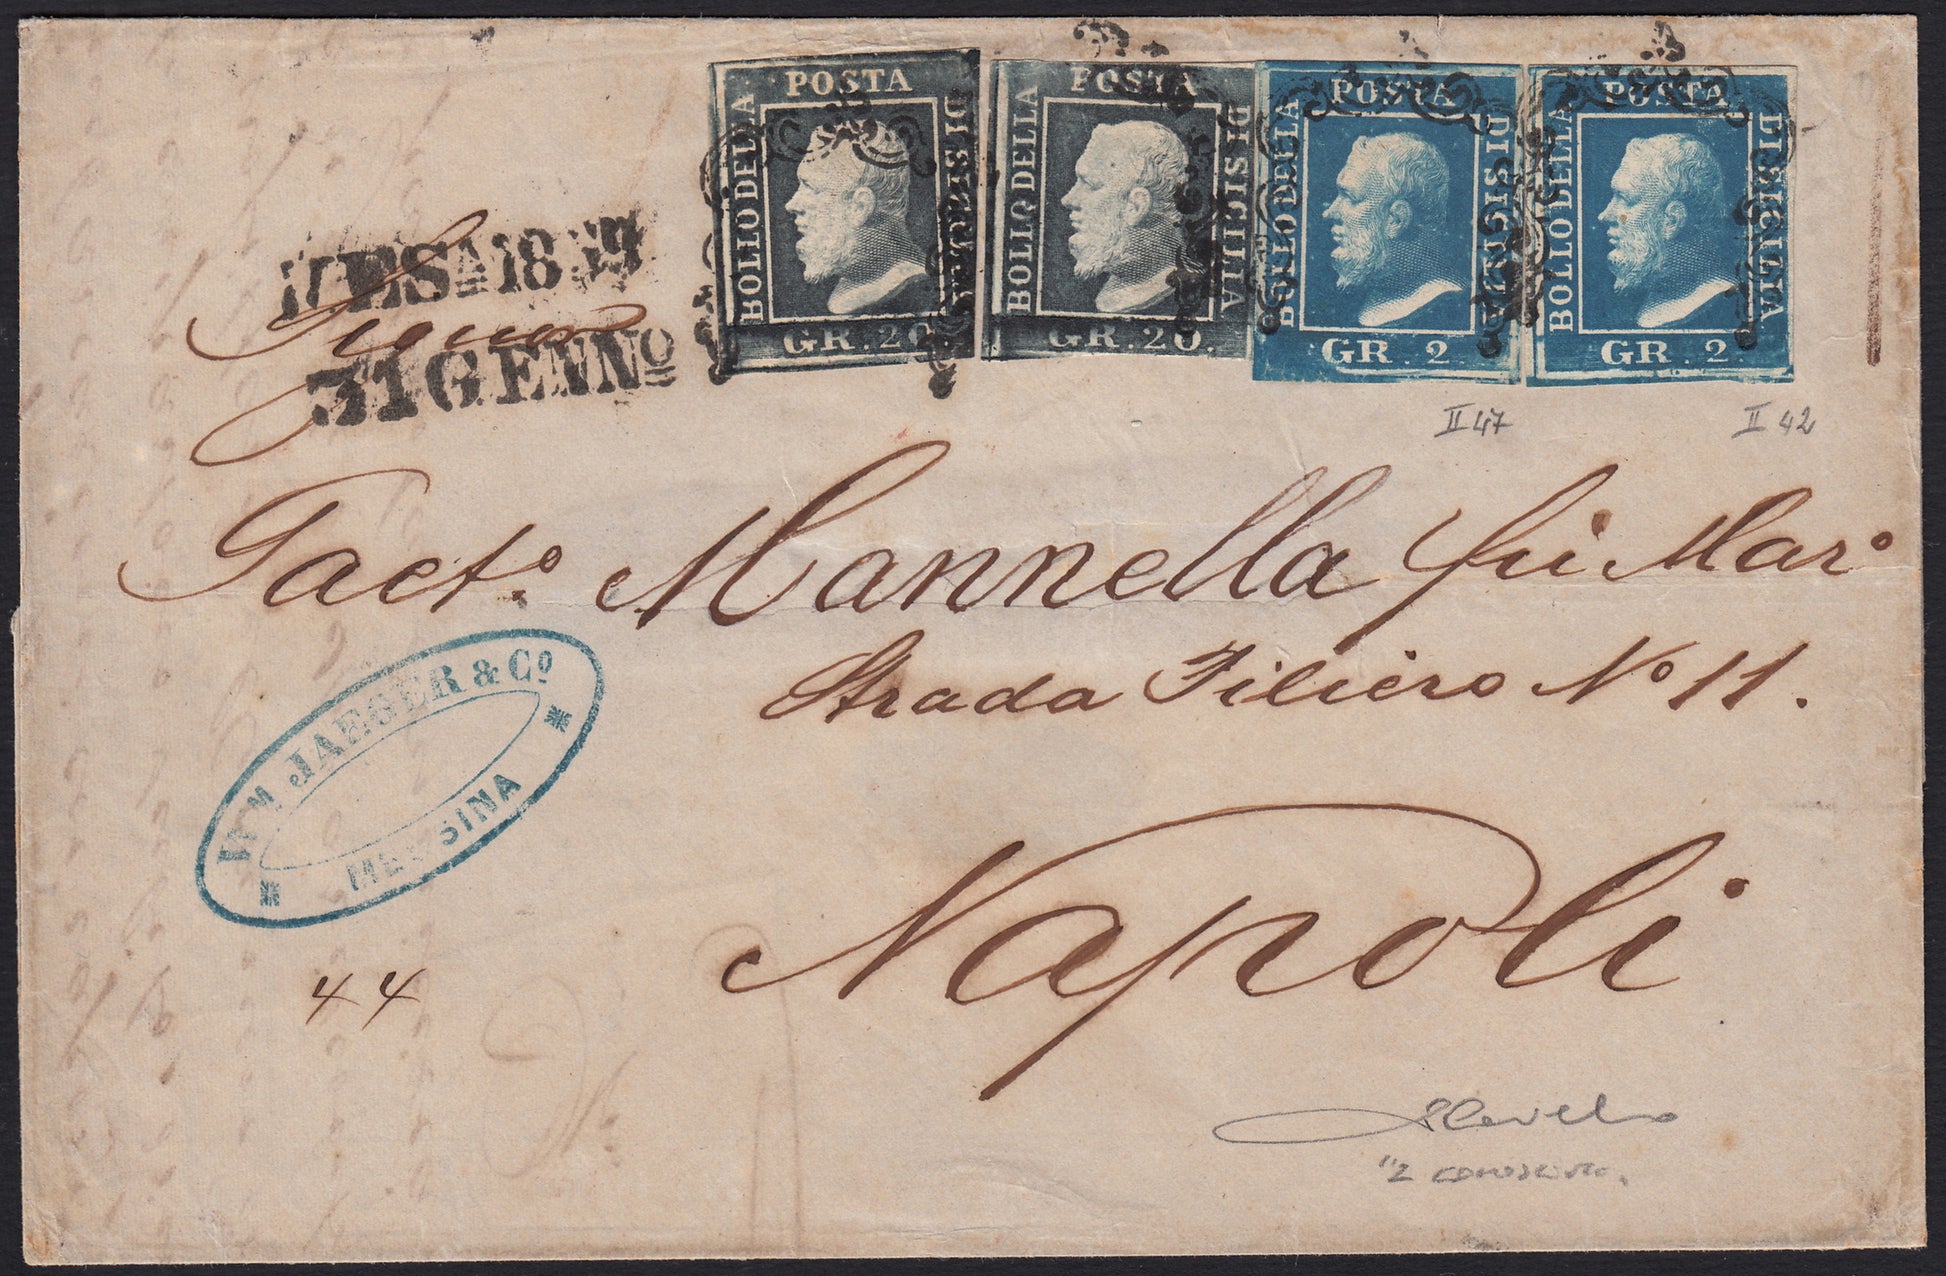 POSTA
BOLLO DELLA
DI SICILIA
GR. 20.
POSTA
BOLLO DELLA
DI SICILIA
GR. 20.
POSTA
BOLLO DELLA
DI SICILIA
GR. 2
POSTA
BOLLO DELLA
DI SICILIA
GR. 2.
MESA 1859
31 GENNO
Signor
II 47
II 42
Gaeto. Mannella fu Maro
Strada Filiero No 11.
WM. JAEGER & Co
MESSINA
Napoli
44